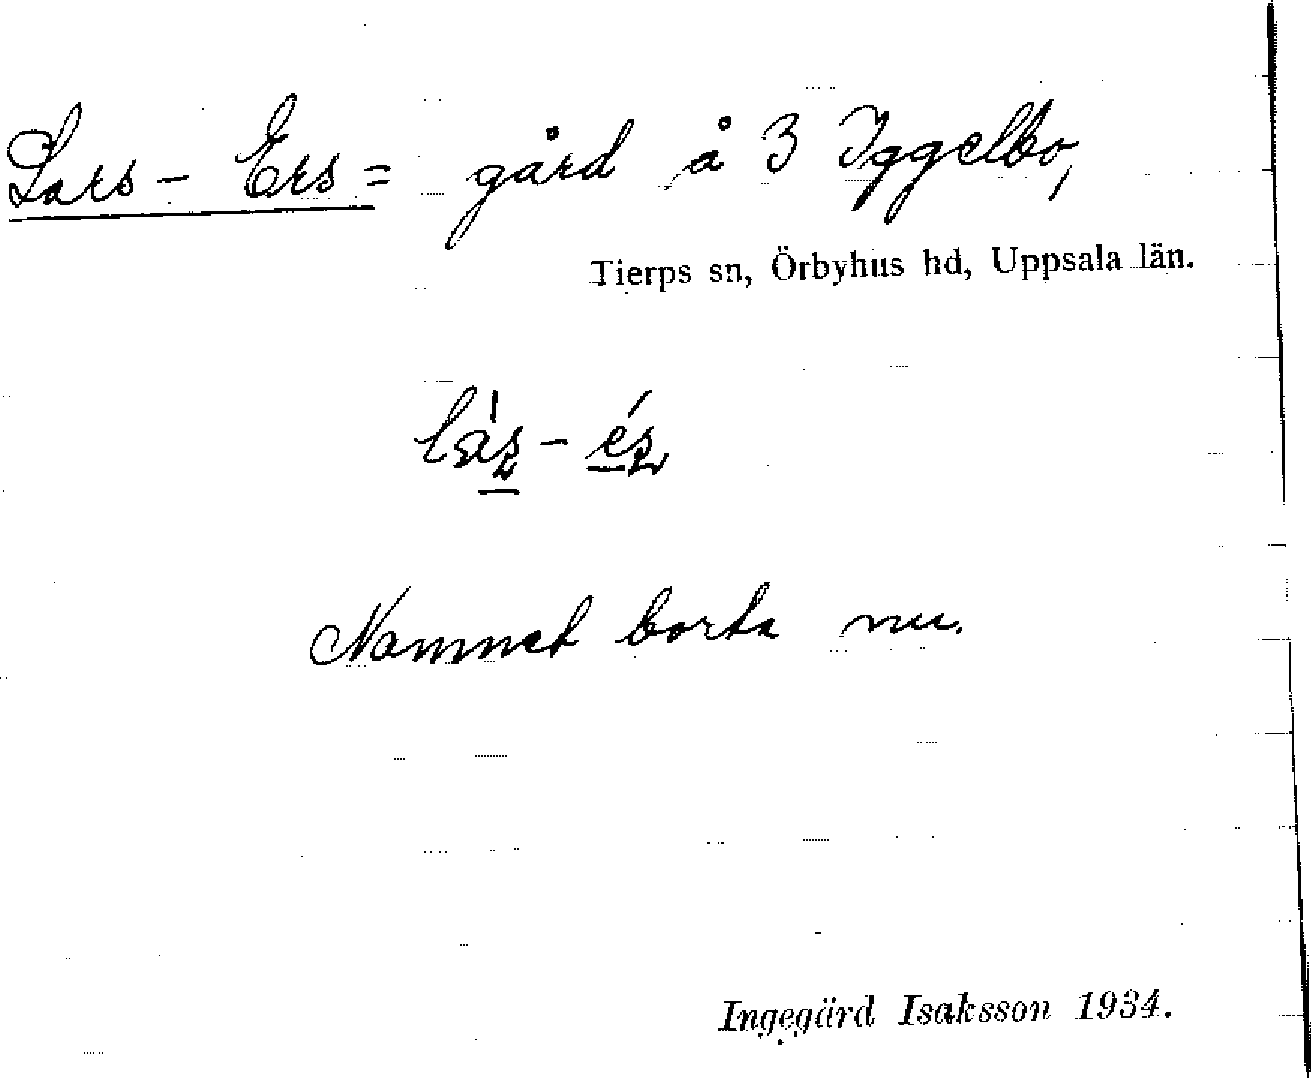 Lars - Ers = gård å 3 Iggelbo,
Tierps sn, Örbyhus hd, Uppsala län.
Namnet borta nu.
Ingegärd Isaksson 1934.